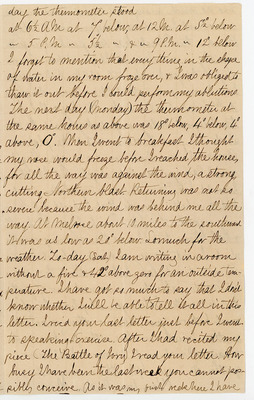 day the thermometer stood
at 6½ A.M. at 7° below, at 12 M. at 5½ below
" 5 P.M. " 3½ " & " 9 P.M. " 10° below
I forgot to mention that everything in the shape
of water in my room froze over, & I was obliged to
thaw it out before I could perform my ablutions
The next day (Monday) the thermometer at
the same hours as above was 18° below, 4° below, 4°
above, 0°. When I went to breakfast I thought
my nose would freeze before I reached the house,
for all the way was against the wind, a strong
cutting Northern blast. Returning was not so
severe because the wind was behind me all the
way. At Melrose about 10 miles to the southward
it was as low as 20° below. So much for the
weather. To-day (Sat.) I am writing in a room
without a fire & 42° above zero for an outside tem-
perature. I have got so much to say that I don't
know whether I will be able to tell it all in this
letter. I rec'd your last letter just before I went
to speaking exercise. After I had recited my
piece (The Battle of Ivry) I read your letter. How
busy I have been the last week you cannot pos-
sibly conceive. As it was my week here I have